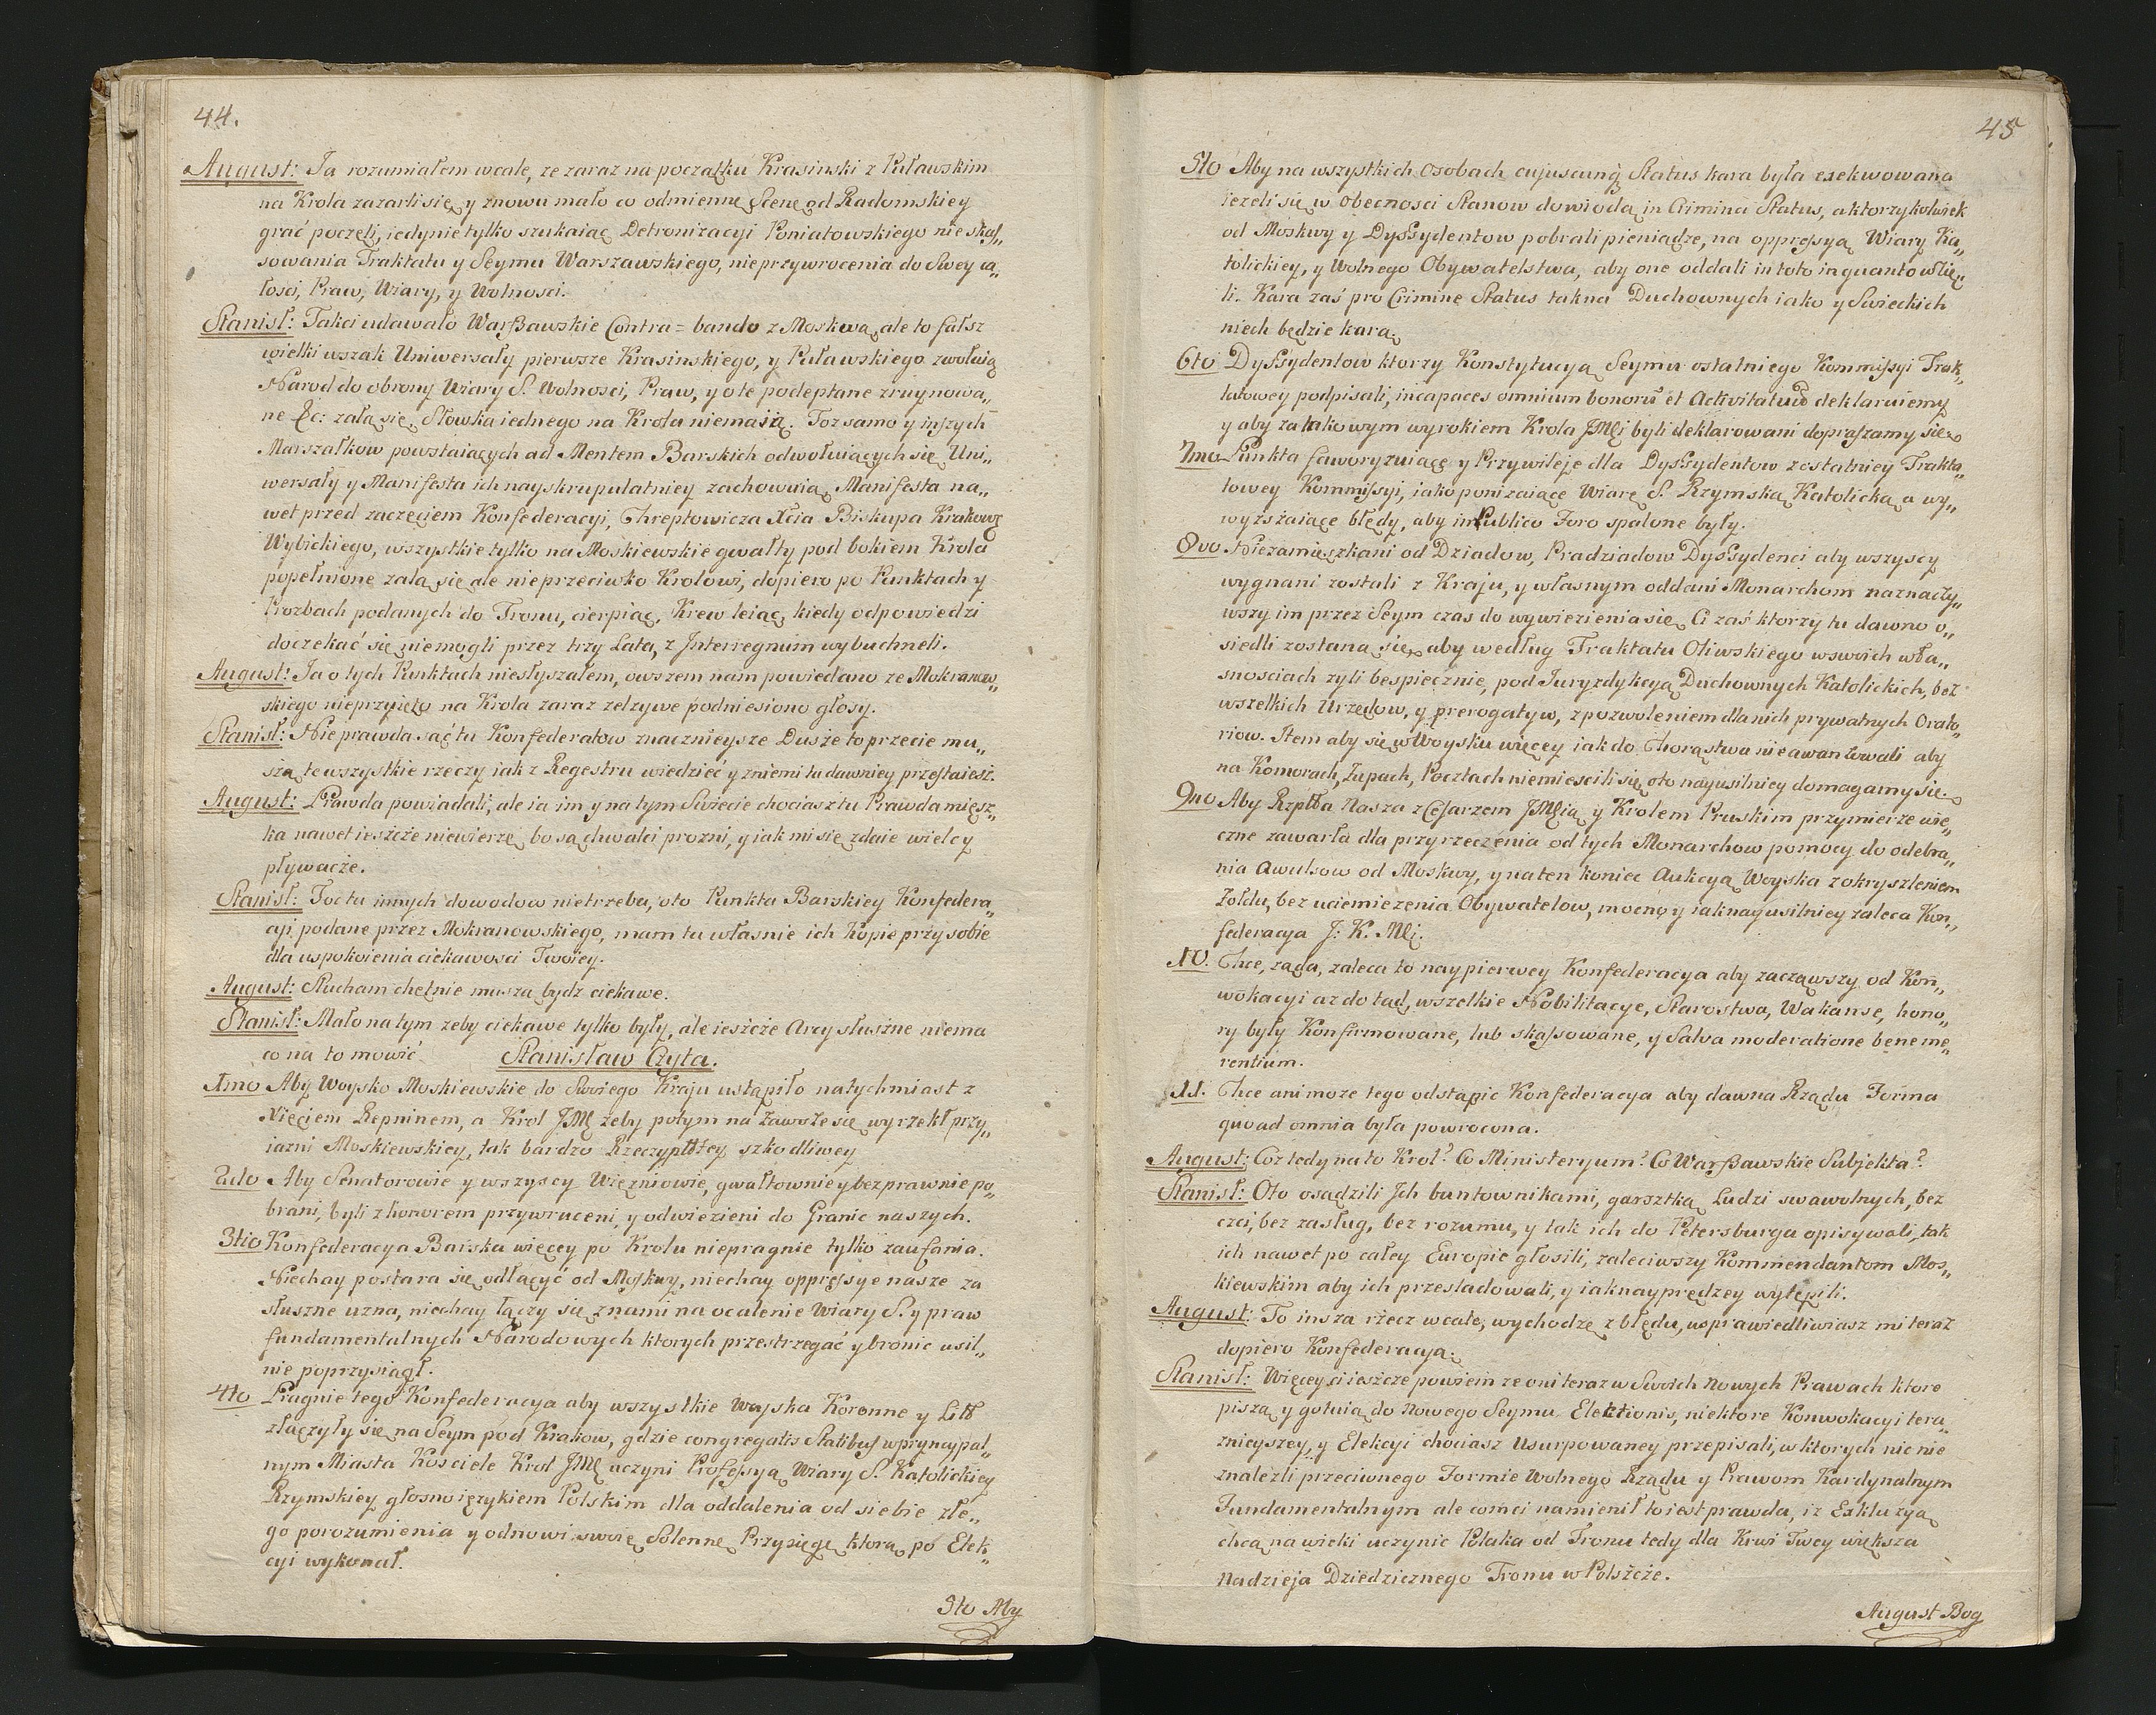 44.
August: Ja rozumiałem wcale, ze zaraz na początku Krasinski z Puławskim
na Krola zazarli się, y znowu mało co odmienną Scenę od Radomskiey
grać poczęli, iedynie tylko szukaiąc Detronizacyi Poniatowskiego nie skas„
sowania Traktatu y Seymu Warszawskiego, nie przywrocenia do Swey ca„
łosci, Praw, Wiary, y Wolnosci.
Stanisł: Takci udawało Warszawskie Contra=bando z Moskwą, ale to fałsz
wielki wszak Uniwersały pierwsze Krasinskiego, y Puławskiego zwołuią
Narod do obrony Wiary S. Wolnosci, Praw, y o te podeptane zruynowa„
ne &c: zalą się, Słowka iednego na Krola niemasz. Toz samo y inszych
Marszałkow powstaiących ad Mentem Barskich odwołuiących się Uni„
wersały y Manifesta ich nayskrupulatniey zachowuią. Manifesta na„
wet przed zaczęciem Konfederacyi, Chreptowicza Xcia Biskupa Krakowg
Wybickiego, wszystkie tylko na Moskiewskie gwałty pod bokiem Krola
popełnione zalą się ale nie przeciwko Krolowi, dopiero po Punktach y
Prozbach podanych do Tronu, cierpiąc, Krew leiąc, kiedy odpowiedzi
doczekać się niemogli przez trzy Lata, z Interregnum wybuchneli.
August: Ja o tych Punktach niesłyszałem, owszem nam powiedano ze Mokranow„
skiego nieprzyięto na Krola zaraz zelzywe podniesiono głosy.
Stanisł: Nie prawda sąć tu Konfederatow znacznieysze Dusze to przecie mu„
szą te wszystkie rzeczy iak z Regestru wiedzieć y z niemi tu dawniey przestaiesz.
August: Prawda powiadali, ale ia im y na tym Swiecie chociasz tu Prawda miesz„
ka nawet ieszcze niewierzę, bo są chwalci prozni, y iak mi się zdaie wielcy
pływacze.
Stanisł: Toc tu innych dowodow nietrzeba, oto Punkta Barskiey Konfedera„
cyi podane przez Mokranowskiego, mam tu własnie ich Kopie przy sobie
dla uspokoienia ciekawosci Twoiey.
August: Słucham chętnie muszą bydz ciekawe.
Stanisł: Mało na tym zeby ciekawe tylko były, ale ieszcze Arcy słuszne niema
co na to mowić Stanisław Czyta.
1mo Aby Woysko Moskiewskie do Swoiego Kraju ustąpiło natychmiast z
Xięciem Repninem, a Krol JMć zeby potym na zawsze się wyrzekł przy„
iazni Moskiewskiey, tak bardzo Rzeczyplttey szkodliwey
2do Aby Senatorowie y wszyscy Więzniowie, gwałtownie y bezprawnie po„
brani, byli z honorem przywruceni, y odwiezieni do Granic naszych.
3tio Konfederacya Barska więcey po Krolu niepragnie tylko zaufania.
Niechay postara się odłączyć od Moskwy, niechay oppressye nasze za
słuszne uzna, niechay łączy się z nami na ocalenie Wiary S. y praw
fundamentalnych Narodowych ktorych przestrzegać y bronic usil„
nie poprzysiągł.
4to Pragnie tego Konfederacya aby wszystkie Woyska Koronne y Litt
złączyły się na Seym pod Krakow, gdzie congregatis Statibus w prynaypal„
nym Miasta Kosciele Krol JMć uczyni Professyą Wiary S. Katolickiey
Rzymskiey głosno ięzykiem Polskim dla oddalenia od siebie złe„
go porozumienia y odnowi swoię Solenną Przysięgę ktorą po Elek„
cyi wykonał.
5to Aby
45
5to Aby na wszystkich Osobach cujuscunq Status kara była exekwowana
iezeli się w Obecnosci Stanow dowiodą in Crimini Status, a ktorzykolwiek
od Moskwy y Dyssydentow pobrali pieniądze, na oppressyą Wiary Ka„
tolickiey, y Wolnego Obywatelstwa, aby one oddali in toto in quanto wzię„
li. Kara zaś pro Crimine Status tak na Duchownych iako y Swieckich
niech będzie kara.
6to Dyssydentow ktorzy Konstytucyą Seymu ostatniego Kommissyi Trak„
tatowey podpisali, incapaces omnium bonorũ et Activitatum deklaruiemy
y aby za takowym wyrokiem Krola JMci byli deklarowani dopraszamy się
7mo Punkta faworyzuiące y Przywileje dla Dyssydentow z ostatniey Trakta„
towey Kommissyi, iako ponizaiące Wiarę S. Rzymską Katolicką a wy„
wyzszaiące błędy, aby in Publico Foro spalone były.
8vo Niezamieszkani od Dziadow, Pradziadow Dyssydenci aby wszyscy
wygnani zostali z Kraju, y własnym oddani Monarchom naznaczy„
wszy im przez Seym czas do wywiezienia się. Ci zaś ktorzy tu dawno o„
siedli zostaną się, aby według Traktatu Oliwskiego w swoich wła„
snosciach zyli bespiecznie, pod Juryzdykcyą Duchownych Katolickich, bez
wszelkich Urzędow, y prerogatyw, z pozwoleniem dla nich prywatnych Orato„
riow. Item aby się w Woysku więcey iak do Chorąstwa nie awantowali aby
na Komorach, Zupach, Pocztach niemiescili się, oto nayusilniey domagamy się.
9no Aby Rzpltta Nasza z Cesarzem JMcią y Krolem Pruskim przymierze wie„
czne zawarła dla przyrzeczenia od tych Monarchow pomocy do odebra„
nia Awulsow od Moskwy, y na ten koniec Aukcyą Woyska z okryszleniem
Zołdu, bez uciemiezenia Obywatelow, mocno y iaknayusilniey zaleca Kon„
federacya J: K. Mci.
10. Chce, ząda, zaleca to naypierwey Konfederacya aby zacząwszy od Kon„
wokacyi az do tąd, wszelkie Nobilitacye, Starostwa, Wakanse, hono„
ry były Konfirmowane, lub skassowane, y Salva moderatione bene me„
rentium.
11. Chce ani moze tego odstąpic Konfederacya aby dawna Rządu Forma
quoad omnia była powrocona.
August: Coz tedy na to Krol? Co Ministeryum? Co Warszawskie Subjekta?
Stanisł: Oto osądzili Ich buntownikami, garsztką Ludzi swawolnych, bez
czci, bez zasług, bez rozumu, y tak ich do Petersburga opisywali, tak
ich nawet po całey Europie głosili, zaleciwszy Kommendantom Mos„
kiewskim aby ich przesladowali, y iaknayprędzey wytępili.
August: To insza rzecz wcale, wychodzę z błędu, usprawiedliwiasz mi teraz
dopiero Konfederacyą.
Stanisł: Więcey ci ieszcze powiem ze oni teraz w Swoich Nowych Prawach ktore
piszą y gotuią do Nowego Seymu Elektionis, niektore Konwokacyi tera„
znieyszey, y Elekcyi chociasz Usurpowaney przepisali, w ktorych nic nie
znalezli przeciwnego Formie Wolnego Rządu y Prawom Kardynalnym
Fundamentalnym ale comci namienił to iest prawda, iz Exkluzyą
chcą na wieki uczynic Polaka od Tronu tedy dla Krwi Twey większa
Nadzieja Dziedzicznego Tronu w Polszcze.
August Bog